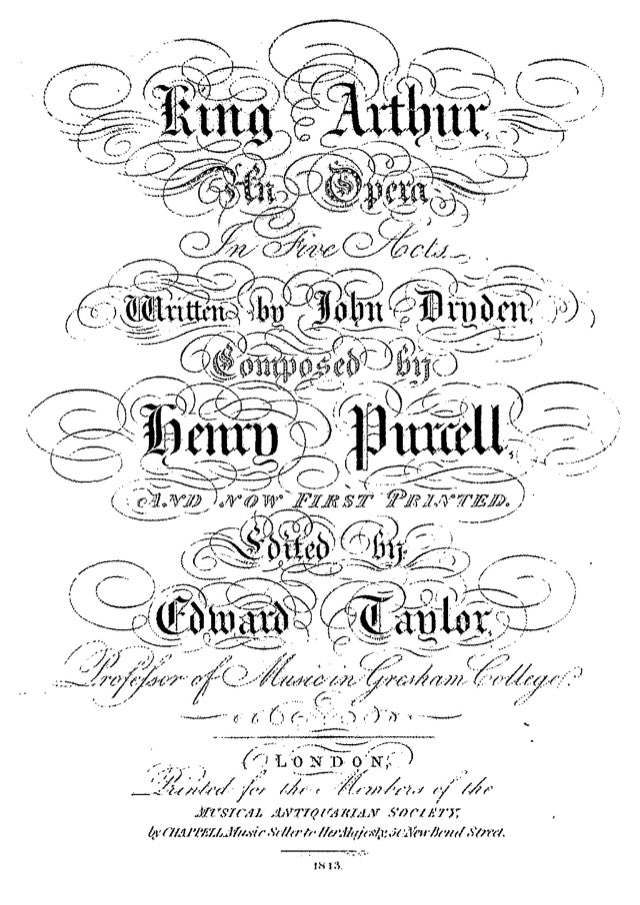 King Arthur,
An Opera
In Five Acts.
Written by John Dryden,
Composed by
Henry Purcell,
AND NOW FIRST PRINTED.
Edited by
Edward Taylor,
Professor of Music in Gresham College.
LONDON,
Printed for the Members of the
MUSICAL ANTIQUARIAN SOCIETY,
by CHAPPELL, Music Seller to Her Majesty, 50 New Bond Street.
1843.